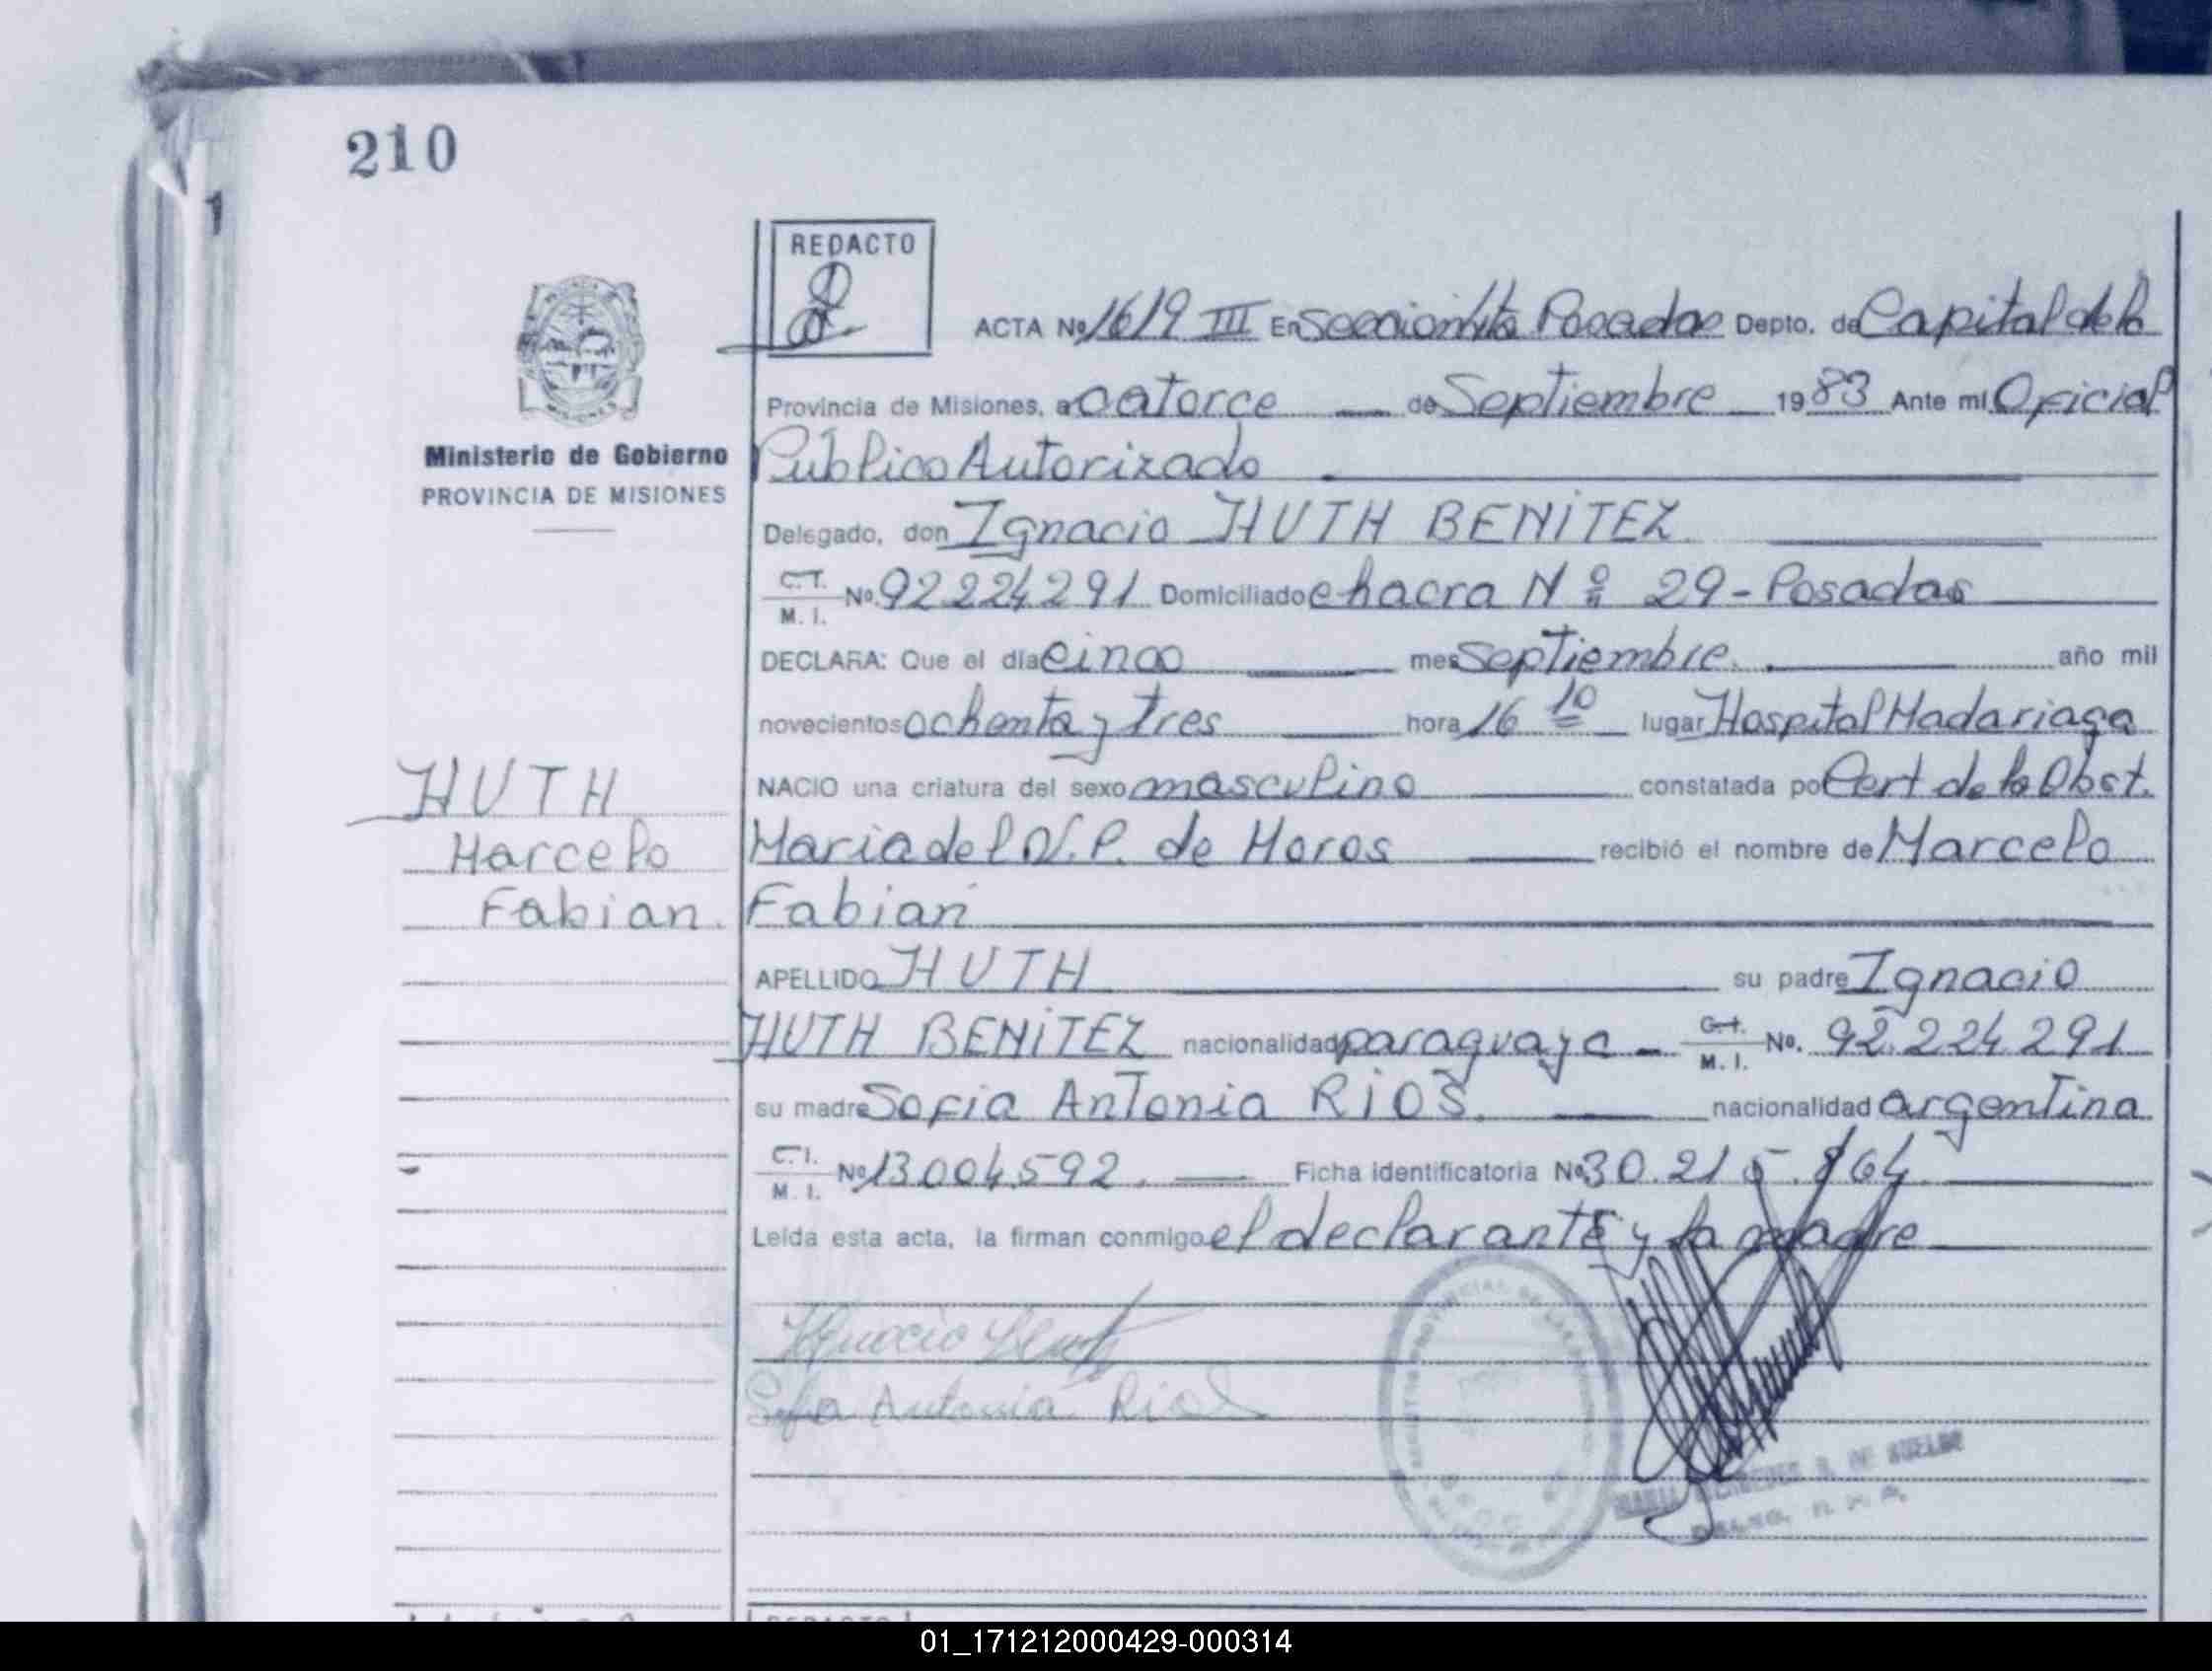 210
1
REDACTO
ACTA Nº 1619 III En Sección 4ta Posadas Depto. de Capital de la
Provincia de Misiones, a catorce de Septiembre 1983 Ante mi Oficial
Ministerio de Gobierno
PROVINCIA DE MISIONES
Público Autorizado
Delegado, don Ignacio HUTH BENITEZ
C.I. M. I. Nº 92224291 Domiciliado chacra Nº 29 - Posadas
DECLARA: Que el día cinco mes Septiembre. año mil
novecientos ochenta y tres hora 16 10 lugar Hospital Madariaga
NACIO una criatura del sexo masculino constatada por Cert de la Obst.
Maria del V. P. de Moros recibió el nombre de Marcelo
Fabian
HUTH
Marcelo
Fabian.
APELLIDO HUTH su padre Ignacio
HUTH BENITEZ nacionalidad paraguaya - C.I. M. I. No. 92.224.291
su madre Sofia Antonia RIOS. nacionalidad argentina
C.I. M. I. Nº 13.004.592. Ficha identificatoria Nº 30.215.864
Leída esta acta, la firman conmigo el declarante y la madre
Ignacio Huth
Sofia Antonia Rios
REDACTO
01_171212000429-000314